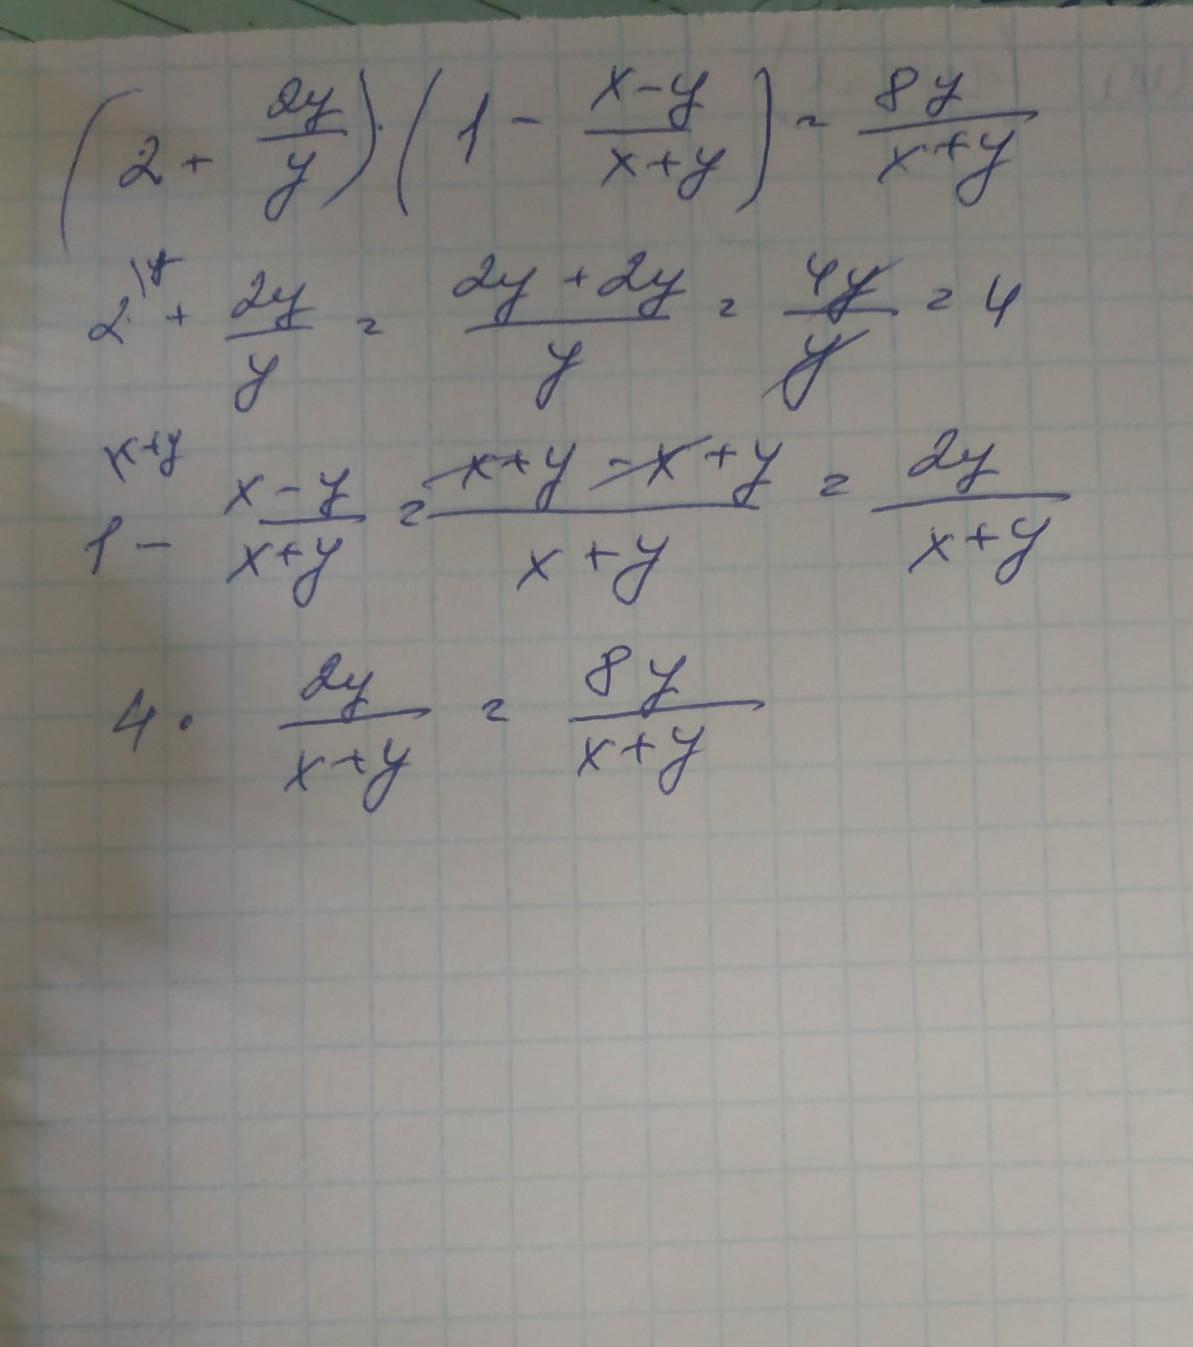 (2 + 2y/y) · (1 - x-y/x+y) = 8y/x+y
2^{\y} + 2y/y = 2y + 2y/y = 4y/y = 4
1^{\x+y} - x-y/x+y = x+y-x+y/x+y = 2y/x+y
4 · 2y/x+y = 8y/x+y